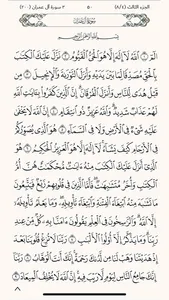 الجزء الثالث (٨/٤)
٥٠
٣ سورة آل عمران (٢٠٠)
سورة آل عمران
بسم الله الرحمن الرحيم
الٓمٓ ١ ٱللَّهُ لَآ إِلَٰهَ إِلَّا هُوَ ٱلْحَىُّ ٱلْقَيُّومُ ٢ نَزَّلَ عَلَيْكَ ٱلْكِتَٰبَ
بِٱلْحَقِّ مُصَدِّقًا لِّمَا بَيْنَ يَدَيْهِ وَأَنزَلَ ٱلتَّوْرَىٰةَ وَٱلْإِنجِيلَ ٣ مِن
قَبْلُ هُدًى لِّلنَّاسِ وَأَنزَلَ ٱلْفُرْقَانَ إِنَّ ٱلَّذِينَ كَفَرُوا۟ بِـَٔايَٰتِ ٱللَّهِ
لَهُمْ عَذَابٌ شَدِيدٌ وَٱللَّهُ عَزِيزٌ ذُو ٱنتِقَامٍ ٤ إِنَّ ٱللَّهَ لَا يَخْفَىٰ عَلَيْهِ
شَىْءٌ فِى ٱلْأَرْضِ وَلَا فِى ٱلسَّمَآءِ ٥ هُوَ ٱلَّذِى يُصَوِّرُكُمْ فِى
ٱلْأَرْحَامِ كَيْفَ يَشَآءُ لَآ إِلَٰهَ إِلَّا هُوَ ٱلْعَزِيزُ ٱلْحَكِيمُ ٦ هُوَ ٱلَّذِىٓ أَنزَلَ
عَلَيْكَ ٱلْكِتَٰبَ مِنْهُ ءَايَٰتٌ مُّحْكَمَٰتٌ هُنَّ أُمُّ
ٱلْكِتَٰبِ وَأُخَرُ مُتَشَٰبِهَٰتٌ فَأَمَّا ٱلَّذِينَ فِى قُلُوبِهِمْ زَيْغٌ فَيَتَّبِعُونَ
مَا تَشَٰبَهَ مِنْهُ ٱبْتِغَآءَ ٱلْفِتْنَةِ وَٱبْتِغَآءَ تَأْوِيلِهِۦ وَمَا يَعْلَمُ تَأْوِيلَهُۥٓ
إِلَّا ٱللَّهُ وَٱلرَّٰسِخُونَ فِى ٱلْعِلْمِ يَقُولُونَ ءَامَنَّا بِهِۦ كُلٌّ مِّنْ عِندِ
رَبِّنَا وَمَا يَذَّكَّرُ إِلَّآ أُو۟لُوا۟ ٱلْأَلْبَٰبِ ٧ رَبَّنَا لَا تُزِغْ قُلُوبَنَا بَعْدَ
إِذْ هَدَيْتَنَا وَهَبْ لَنَا مِن لَّدُنكَ رَحْمَةً إِنَّكَ أَنتَ ٱلْوَهَّابُ ٨ رَبَّنَآ
إِنَّكَ جَامِعُ ٱلنَّاسِ لِيَوْمٍ لَّا رَيْبَ فِيهِ إِنَّ ٱللَّهَ لَا يُخْلِفُ ٱلْمِيعَادَ ٩